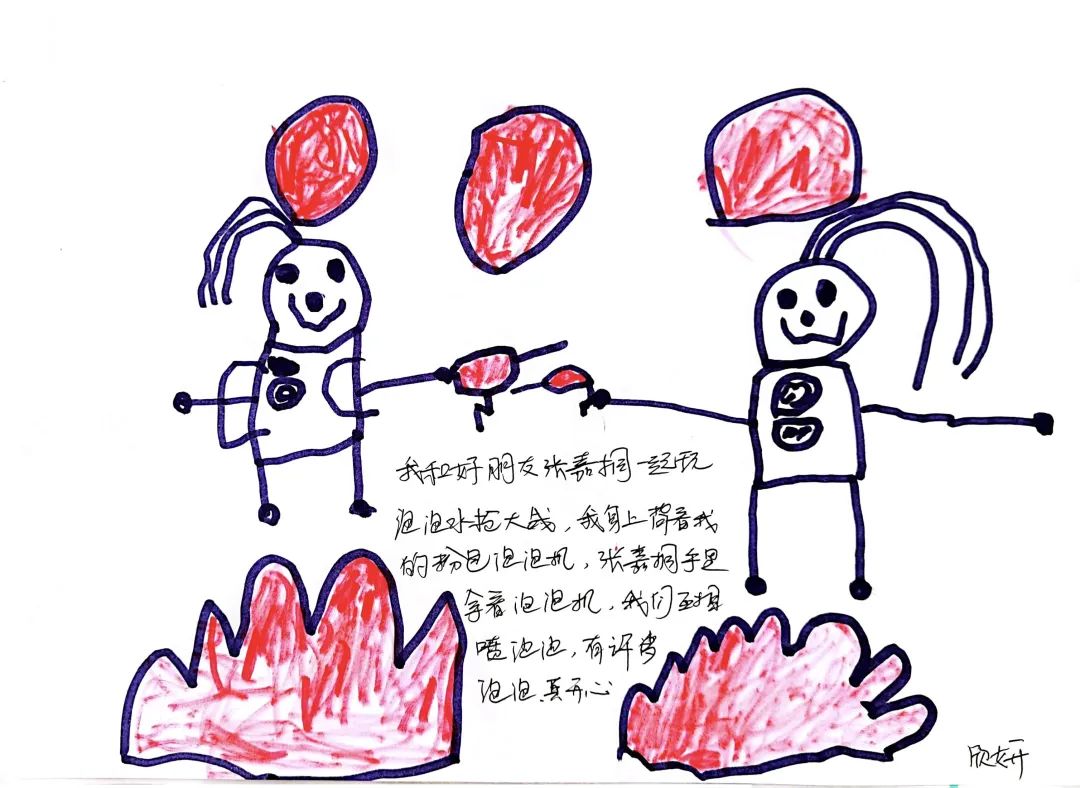 我和好朋友张嘉桐一起玩
泡泡水枪大战，我身上背着我
的粉色泡泡机，张嘉桐手里
拿着泡泡机，我们互相
喷泡泡，有许多
泡泡真开心
欣妍